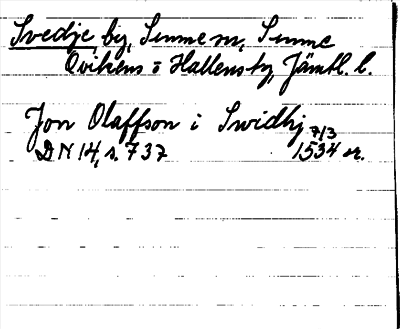 Svedje by, Sunne sn, Sunne
Ovikens o Hallens tg, Jämtl. l.
Jon Olaffson i Swidhj
DN 14, s. 737 7/3 1534 or.